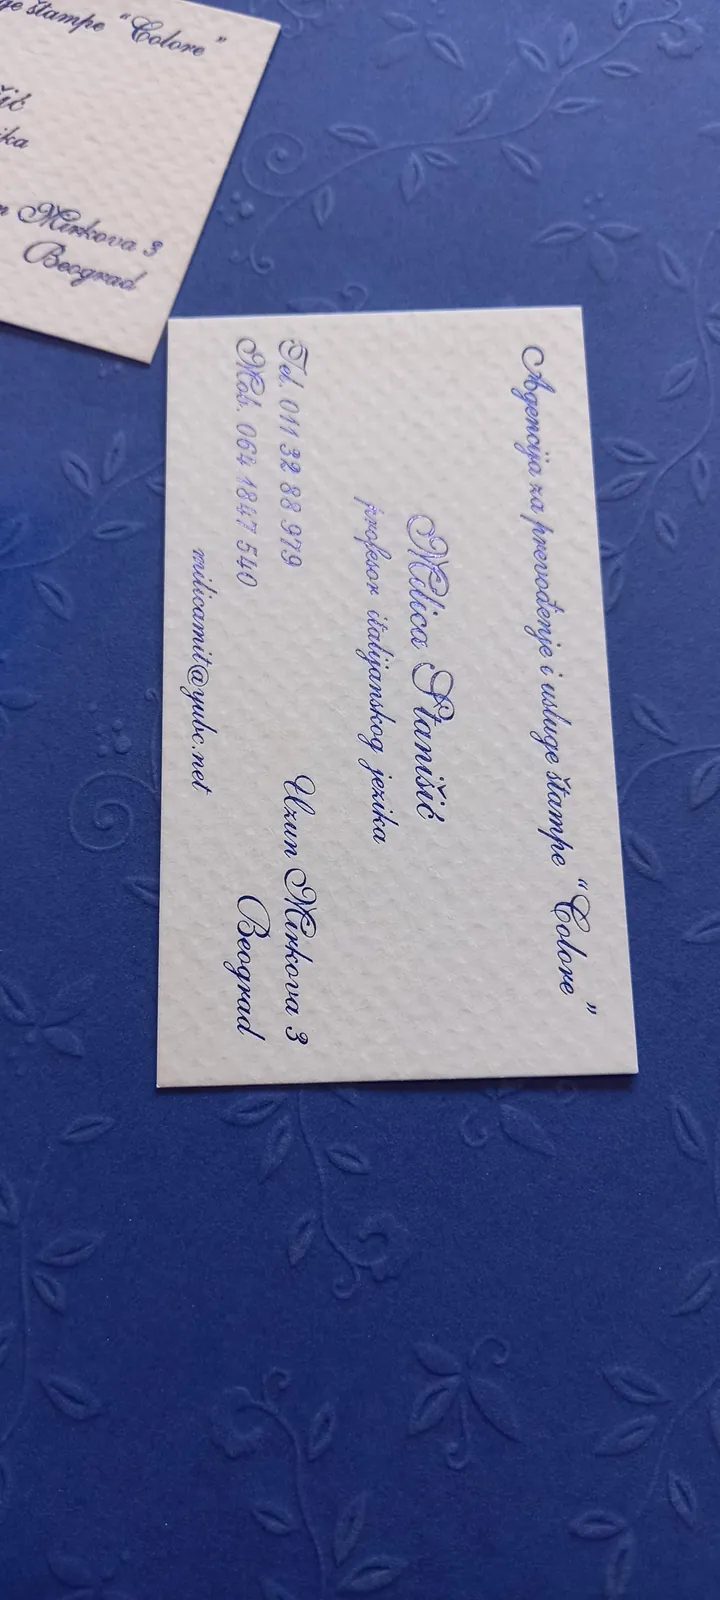 ge štampe "Colore"
šić
ika
n Mirkova 3
Beograd
Agencija za prevođenje i usluge štampe "Colore"
Milica Stanišić
profesor italijanskog jezika
Tel. 011 32 88 979
Mob. 064 1847 540
Uzun Mirkova 3
Beograd
milicamit@yubc.net